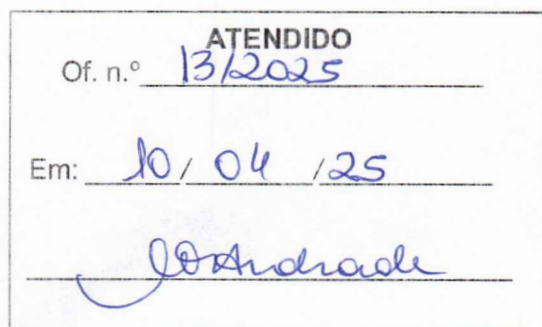 ATENDIDO
Of. n.º 13/2025
Em: 10/04/25
Andrade